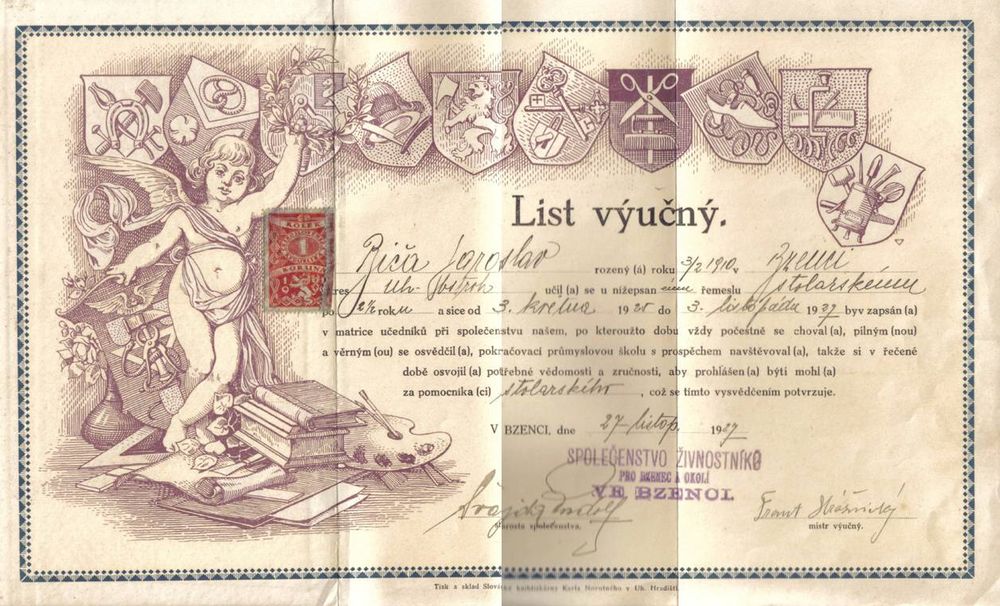 List výučný.
KOLEK
1
KORUNA
Říča Jaroslav rozený (á) roku 3/2 1910 v Bzenci
okres Uh. Ostroh učil (a) se u nížepsaného řemeslu stolarskému
po 2½ roku a sice od 3. května 1925 do 3. listopadu 1927 byv zapsán (a)
v matrice učedníků při společenstvu našem, po kteroužto dobu vždy počestně se choval (a), pilným (nou)
a věrným (ou) se osvědčil (a), pokračovací průmyslovou školu s prospěchem navštěvoval (a), takže si v řečené
době osvojil (a) potřebné vědomosti a zručnosti, aby prohlášen (a) býti mohl (a)
za pomocníka (ci) stolarského, což se tímto vysvědčením potvrzuje.
V BZENCI, dne 27 listop. 1927
SPOLEČENSTVO ŽIVNOSTNÍKŮ
PRO BZENEC A OKOLÍ
VE BZENCI.
starosta společenstva.
mistr výučný.
Tisk a sklad Slovácké knihtiskárny Karla Novotného v Uh. Hradišti.